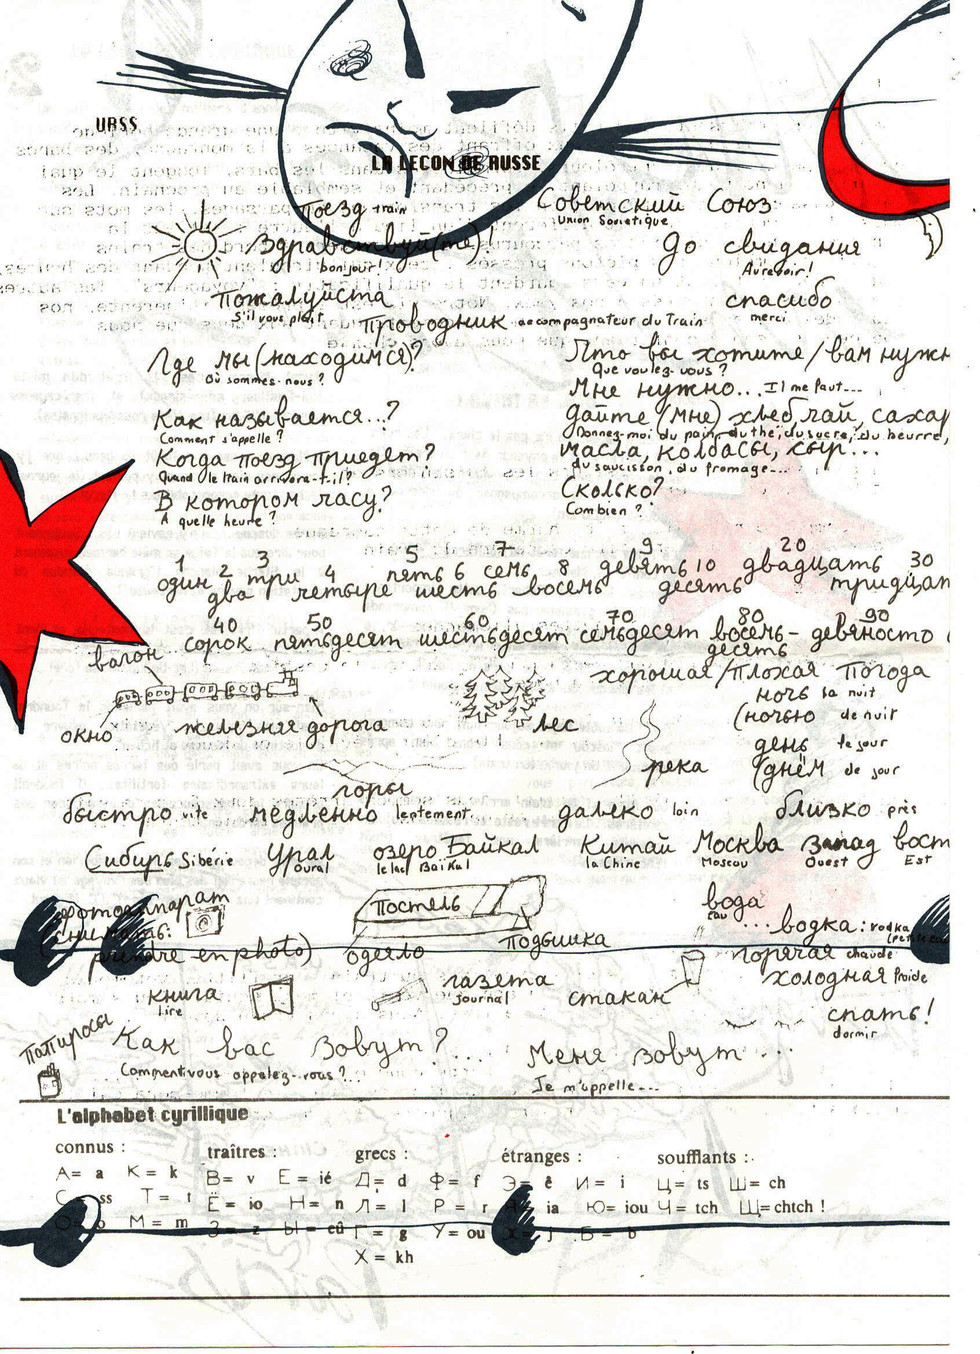 URSS
LA LEÇON DE RUSSE
Поезд train
Советский Союз
Union Soviétique
Здравствуй(те)!
bonjour!
До свидания
Au revoir!
Пожалуйста
S'il vous plaît
спасибо
merci
Проводник accompagnateur du Train
Где мы (находимся)?
Où sommes-nous?
Что вы хотите / вам нужн
Que voulez-vous?
Мне нужно... Il me faut...
Как называется...?
Comment s'appelle?
Дайте (мне) хлеб, чай, сахар
Donnez-moi du pain, du thé, du sucre, du beurre,
Когда поезд приедет?
Quand le train arrivera-t-il?
масла, колбасы, сыр...
du saucisson, du fromage...
В котором часу?
A quelle heure?
Сколько?
Combien?
1 2 3 4 5 6 7 8 9 10 20 30
один два три четыре пять шесть семь восемь девять десять двадцать тридцат
40 50 60 70 80 90
сорок пятьдесят шестьдесят семьдесят восемь-десять девяносто
вагон
окно
железная дорога
лес
хорошая/плохая погода
ночь la nuit
(ночью de nuit
день le jour
(днём de jour
река
горы
быстро vite
медленно lentement
далеко loin
близко près
Сибирь Sibérie
Урал
Oural
озеро Байкал
le lac Baïkal
Китай
la Chine
Москва
Moscou
Запад
Ouest
вост
Est
фотоаппарат
prendre en photo)
Постель
одеяло
подушка
вода
eau
...водка: vodka
горячая chaude
холодная froide
книга
lire
газета
journal
стакан
спать!
dormir
Папиросы
Как вас зовут?...
Comment vous appelez-vous?...
Меня зовут...
Je m'appelle...
L'alphabet cyrillique
connus :
А= a К= k
С= ss Т= t
О= o М= m
traîtres :
В= v Е= ié
Ё= io Н= n
З= z Ы= eû
grecs :
Д= d Ф= f
Л= l Р= r
Г= g У= ou
Х= kh
étranges :
Э= ê И= i
Я= ia Ю= iou
Ж= j Б= b
soufflants :
Ц= ts Ш= ch
Ч= tch Щ= chtch !